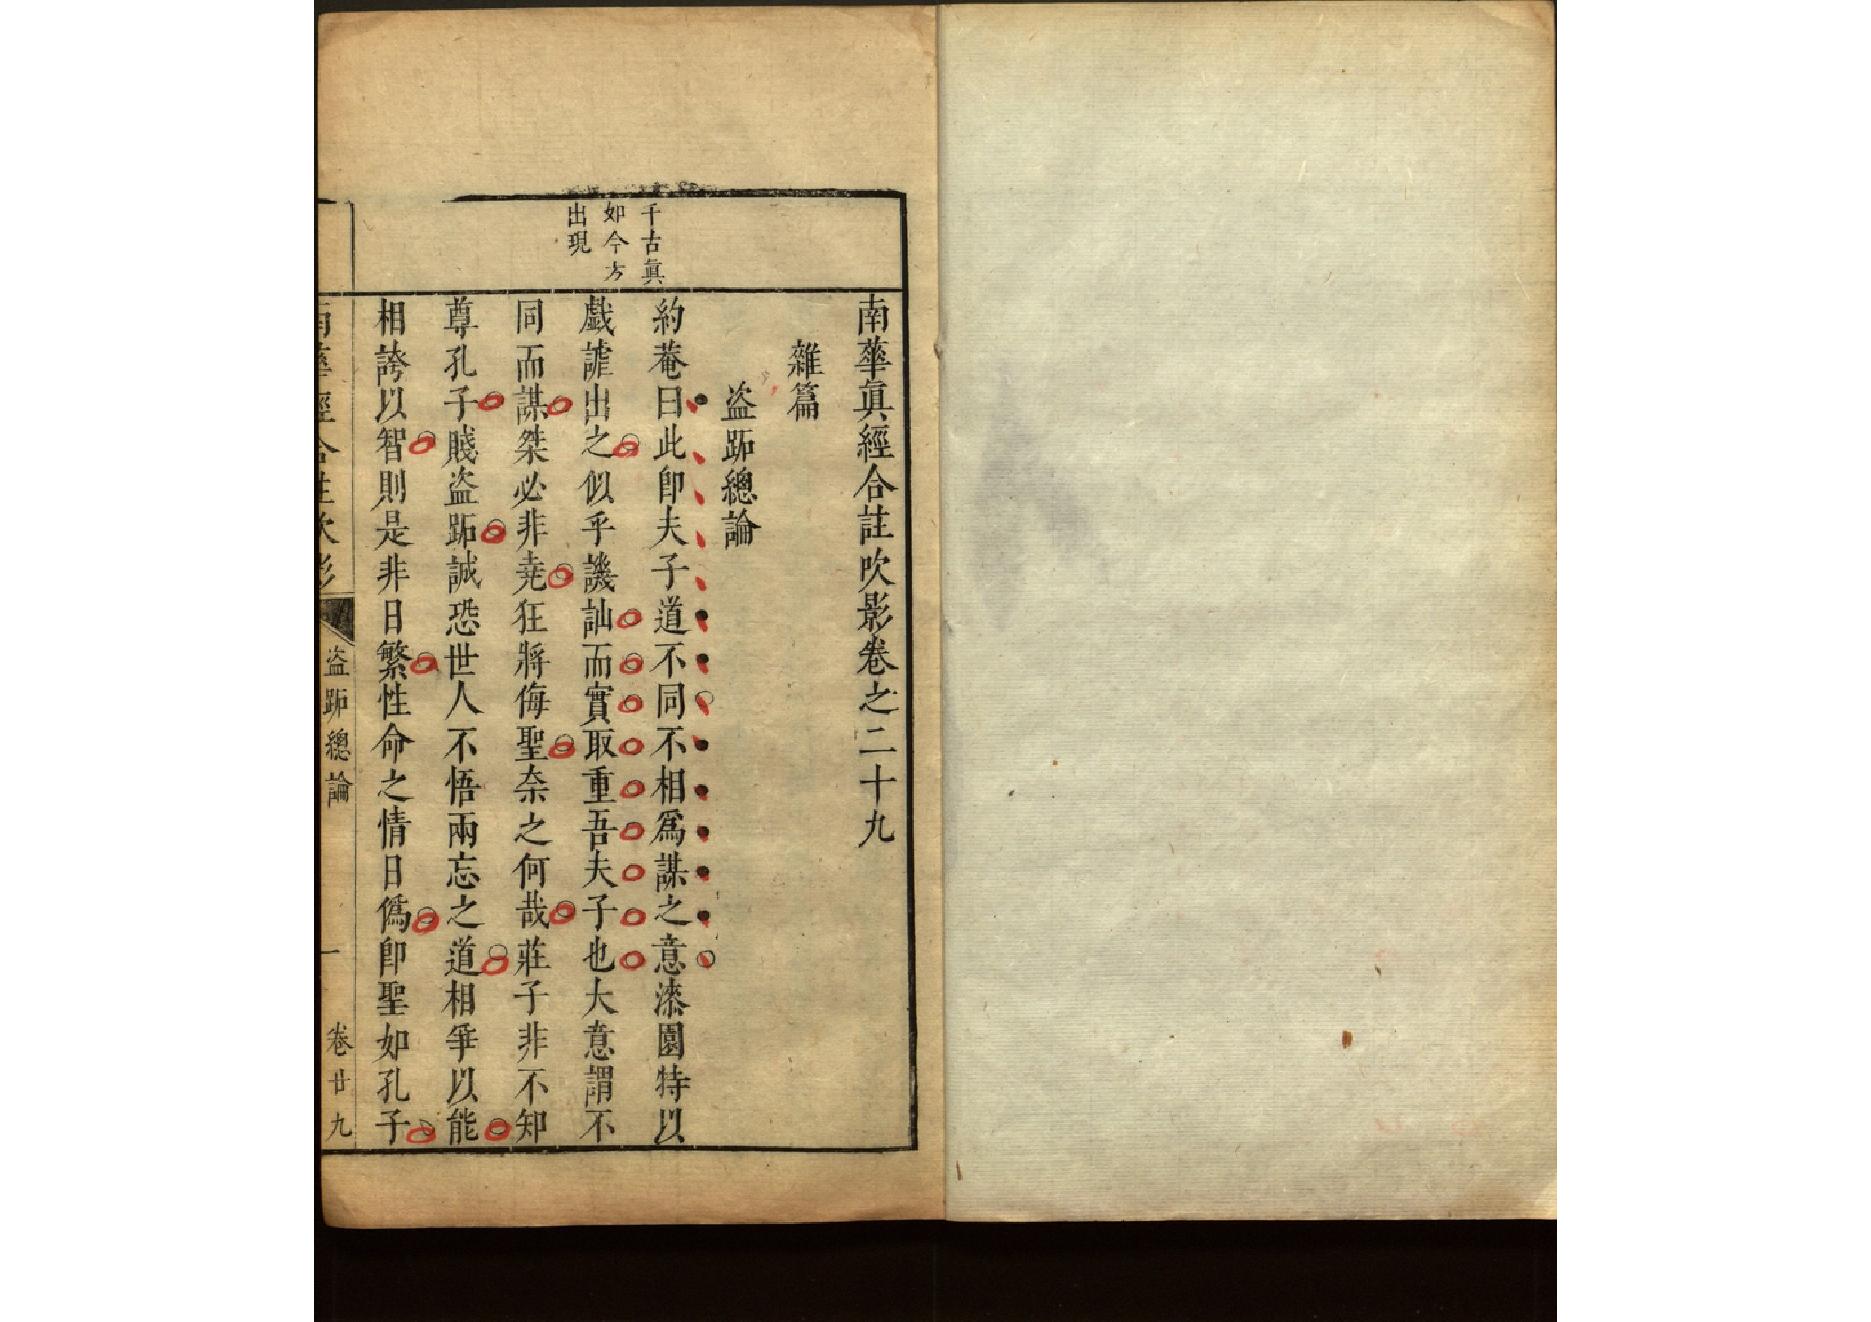 南華眞經合註吹影卷之二十九
雜篇
盗跖總論
約菴曰此卽夫子道不同不相爲謀之意漆園特以
戲謔出之似乎譏訕而實取重吾夫子也大意謂不
同而謀桀必非堯狂將侮聖奈之何哉莊子非不知
尊孔子賤盗跖誠恐世人不悟兩忘之道相爭以能
相誇以智則是非日繁性命之情日僞卽聖如孔子
千古眞
如今方
出現
南華經合註吹影
盗跖總論
一
卷廿九